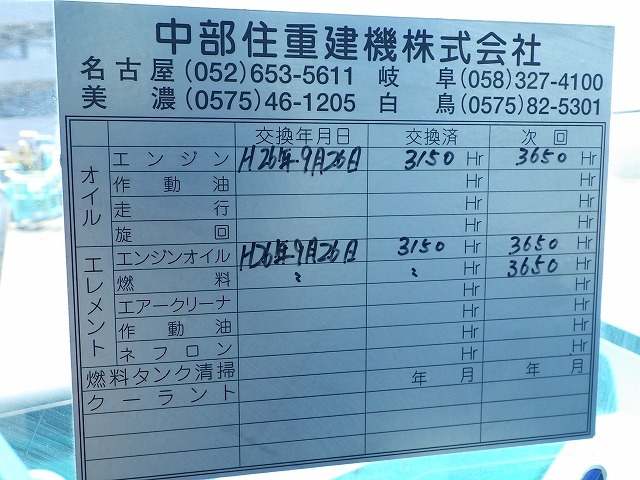 中部住重建機株式会社
名古屋(052)653-5611 岐阜(058)327-4100
美濃(0575)46-1205 白鳥(0575)82-5301
交換年月日 交換済 次回
オイル
エンジン H26年9月26日 3150 Hr 3650 Hr
作動油 Hr Hr
走行 Hr Hr
旋回 Hr Hr
エレメント
エンジンオイル H26年9月26日 3150 Hr 3650 Hr
燃料 〃 〃 Hr 3650 Hr
エアークリーナ Hr Hr
作動油 Hr Hr
ネフロン Hr Hr
燃料タンク清掃 年 月 年 月
クーラント